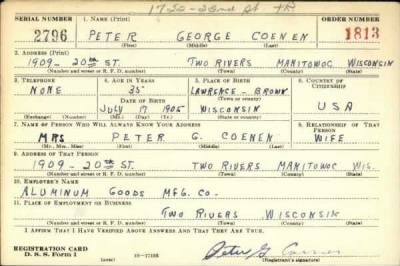 1722-22nd St TR
SERIAL NUMBER 1. NAME (Print) ORDER NUMBER
2796 PETER GEORGE COENEN 1813
(First) (Middle) (Last)
2. ADDRESS (Print)
1909-20TH ST. TWO RIVERS MANITOWOC WISCONSIN
(Number and street or R. F. D. number) (Town) (County) (State)
3. TELEPHONE 4. AGE IN YEARS 5. PLACE OF BIRTH 6. COUNTRY OF CITIZENSHIP
NONE 35 LAWRENCE - BROWN
DATE OF BIRTH (Town or county)
JULY 17 1905 WISCONSIN USA
(Exchange) (Number) (Mo.) (Day) (Yr.) (State or country)
7. NAME OF PERSON WHO WILL ALWAYS KNOW YOUR ADDRESS 8. RELATIONSHIP OF THAT PERSON
MRS PETER G. COENEN WIFE
(Mr., Mrs., Miss) (First) (Middle) (Last)
9. ADDRESS OF THAT PERSON
1909-20TH ST. TWO RIVERS MANITOWOC WIS.
(Number and street or R. F. D. number) (Town) (County) (State)
10. EMPLOYER'S NAME
ALUMINUM GOODS MFG. CO.
11. PLACE OF EMPLOYMENT OR BUSINESS
TWO RIVERS WISCONSIN
(Number and street or R. F. D. number) (Town) (County) (State)
I AFFIRM THAT I HAVE VERIFIED ABOVE ANSWERS AND THAT THEY ARE TRUE.
REGISTRATION CARD
D. S. S. Form 1 16-17105 Peter G Coenen
(Registrant's signature)